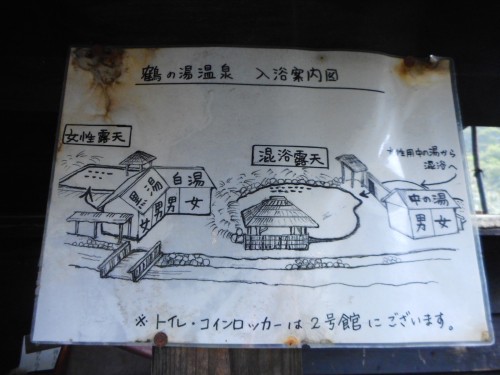 鶴の湯温泉 入浴案内図
女性露天
混浴露天
女性用中の湯から
混浴へ
黒湯
白湯
女 男
男 女
中の湯
男 女
※トイレ・コインロッカーは2号館にございます。